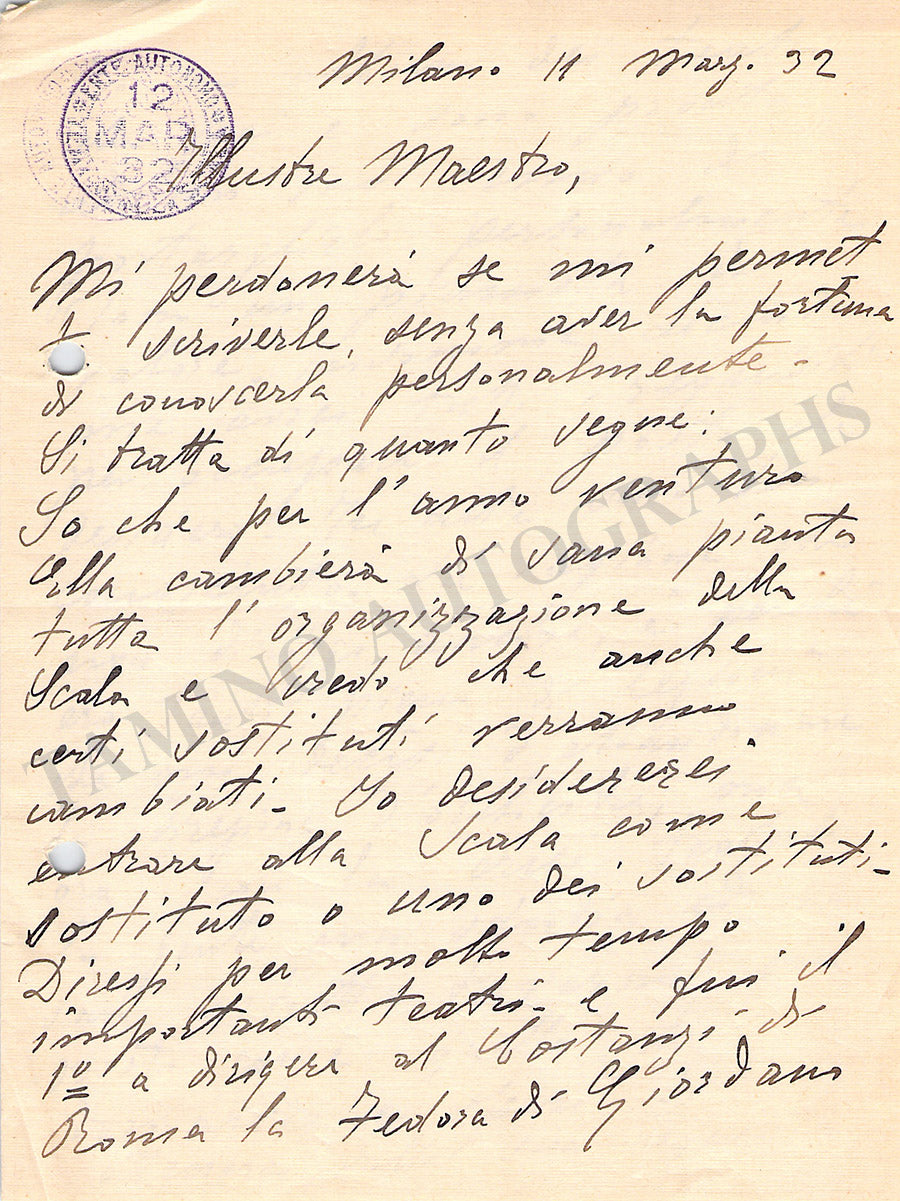 Milano 11 Marz. 32
ENTE AUTONOMO
12
MAR
32
Illustre Maestro,
Mi perdonerà se mi permet
to scriverle, senza aver la fortuna
di conoscerla personalmente -
Si tratta di quanto segue:
So che per l'anno venturo
Ella cambierà di sana pianta
tutta l'organizzazione della
Scala e credo che anche
certi sostituti verranno
cambiati - Io desidererei
entrare alla Scala come
sostituto o uno dei sostituti -
Diressi per molto tempo
importanti teatri - e fui il
1º a dirigere al Costanzi di
Roma la Fedora di Giordano
TAMINO AUTOGRAPHS